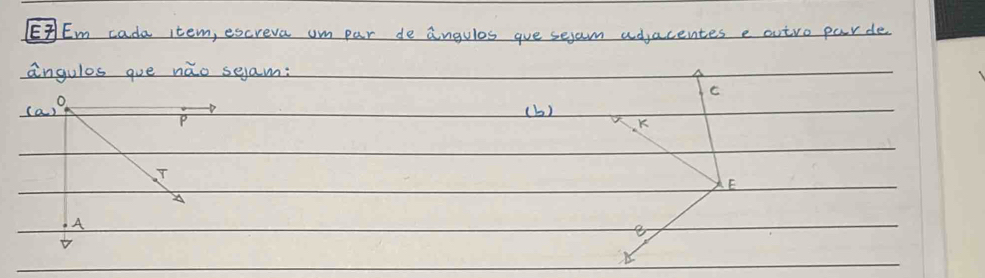 E7 Em cada item, escreva um par de ângulos que sejam adjacentes e outro par de
ângulos que não sejam:
(a) O P T A
(b) C K E B